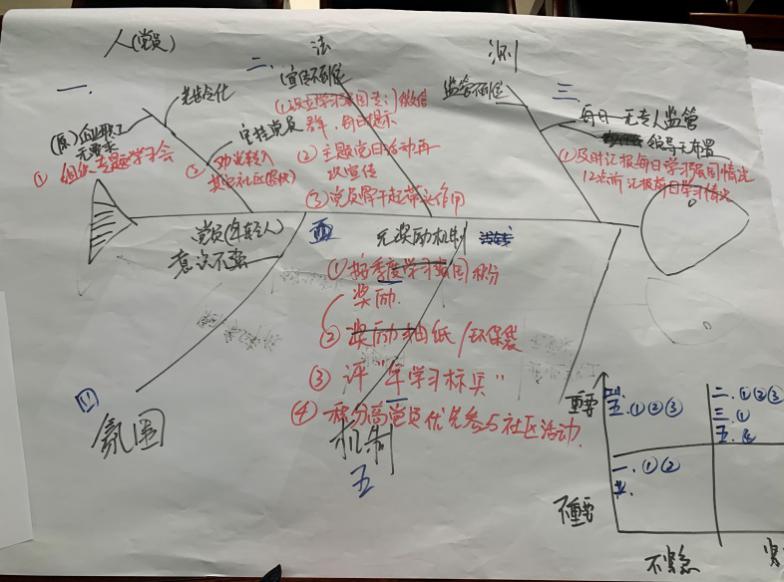 人(党员)
法
测
一.
二.
三
老龄化
宣传不到位
监管不到位
(原)企业职工
无要求
在职党员
① 组织专题学习会
群、每日提示
② 主题党日活动再
次宣传
③ 党员骨干起带头作用
每日一无专人监管
领导无布置
①及时汇报每日学习强国情况
12点前汇报每日学习情况
党员(年轻人)
意识不强
五
无奖励机制
①按季度学习强国积分
奖励.
② 奖励抽纸/环保袋
③ 评“年学习标兵”
④ 积分高党员优先参与社区活动.
氛围
机制
五
重要
不重要
不紧急
紧
四
五.①②③
二.①②③
三.①
五.④
一.①②